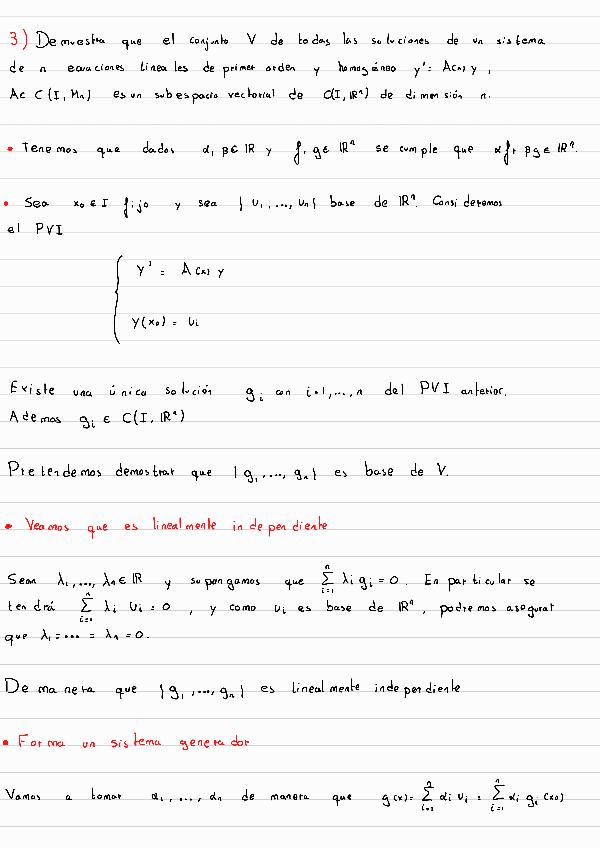 3) Demuestra que el conjunto V de todas las soluciones de un sistema
de n ecuaciones lineales de primer orden y homogéneo y' = A(x) y ,
A ∈ C(I, Mn) es un subespacio vectorial de C(I, ℝⁿ) de dimensión n.
• Tenemos que dados α, β ∈ ℝ y f, g ∈ ℝⁿ se cumple que αf + βg ∈ ℝⁿ.
• Sea x₀ ∈ I fijo y sea {v₁, ..., vn} base de ℝⁿ. Consideremos
el PVI
y' = A(x) y
y(x₀) = vi
Existe una única solución gi con i=1,...,n del PVI anterior.
Ademas gi ∈ C(I, ℝⁿ)
Pretendemos demostrar que {g₁, ..., gn} es base de V.
• Veamos que es linealmente independiente
Sean λ₁, ..., λn ∈ ℝ y supongamos que ∑ⁿᵢ₌₁ λi gi = 0. En particular se
tendrá ∑ⁿᵢ₌₁ λi vi = 0 , y como vi es base de ℝⁿ, podremos asegurar
que λ₁ = ... = λn = 0.
De manera que {g₁, ..., gn} es linealmente independiente
• Forma un sistema generador
Vamos a tomar α₁, ..., αn de manera que g(x) = ∑ⁿᵢ₌₁ αi vi = ∑ⁿᵢ₌₁ αi gi (x₀)